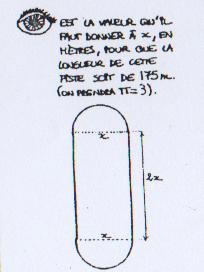 EST LA VALEUR QU'IL
FAUT DONNER À x, EN
MÈTRES, POUR QUE LA
LONGUEUR DE CETTE
PISTE SOIT DE 175 m.
(ON PRENDRA π = 3).
x
2x
x